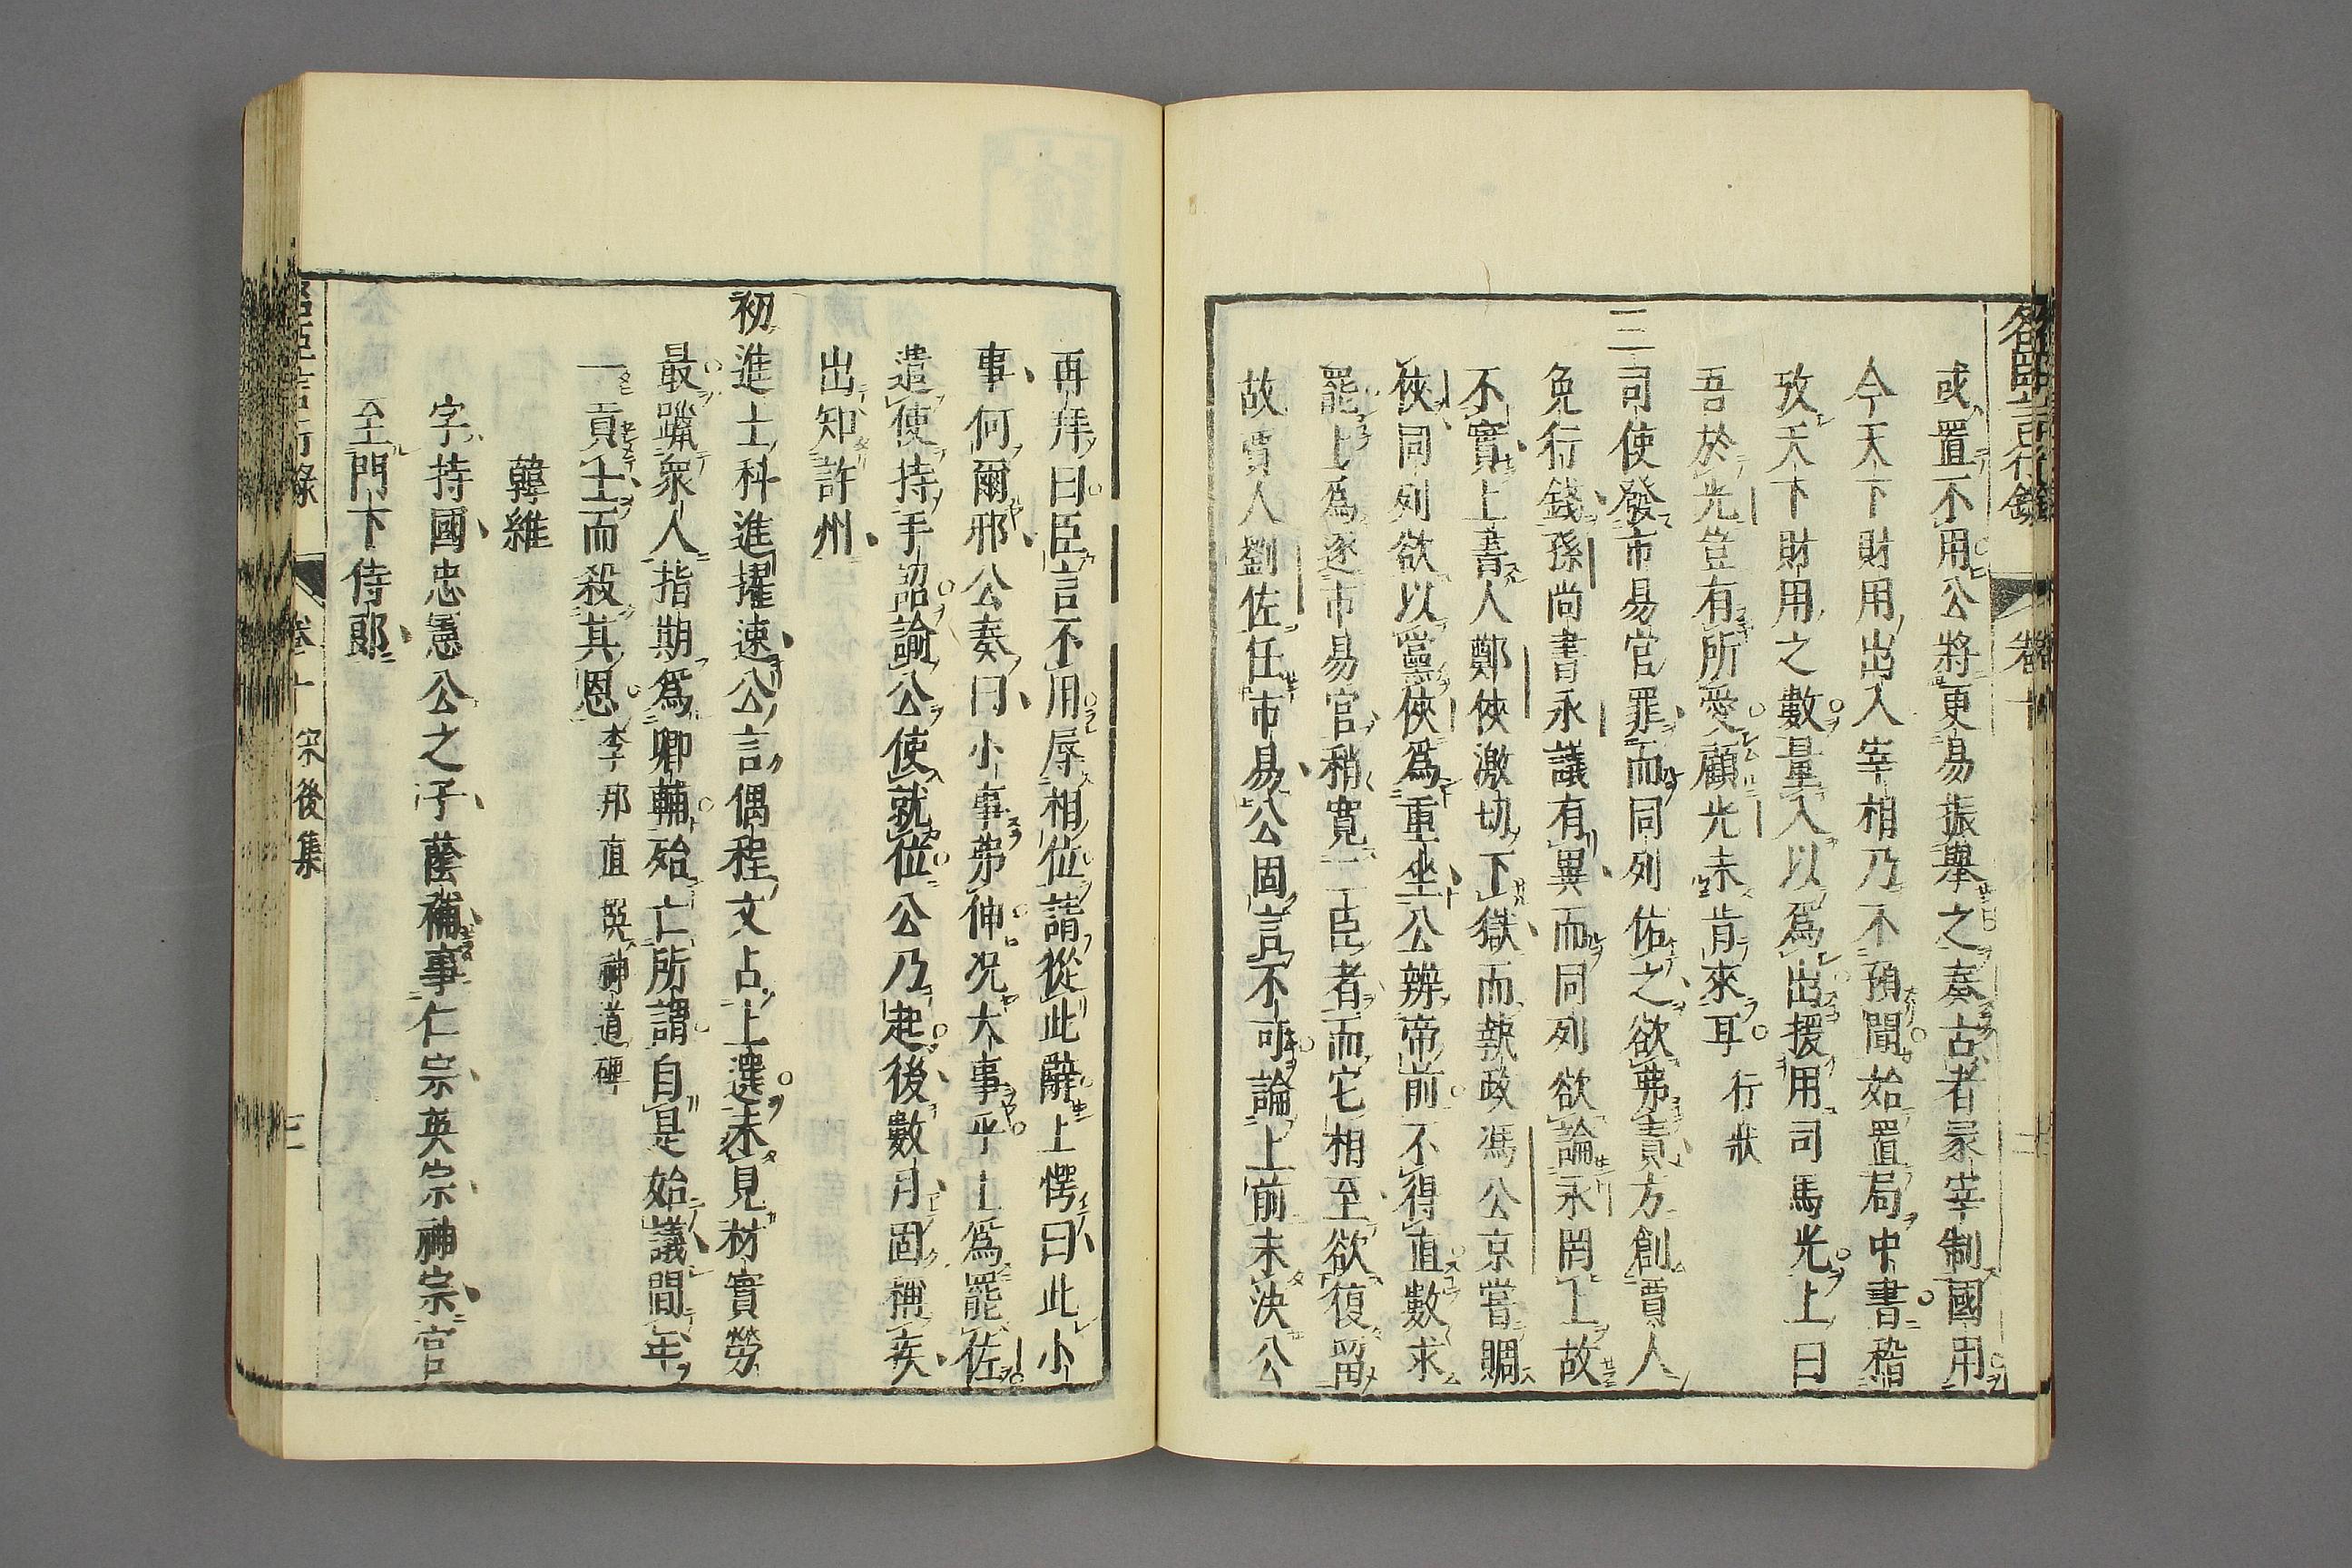 名臣言行錄 卷十
或置不用公將更易振舉之奏古者冢宰制國用
今天下財用出入宰相乃不預聞始置局中書稽
攷天下財用之數量入以爲出援用司馬光上曰
吾於光豈有所愛顧光未肯來耳 行狀
三司使發市易官罪而同列佑之欲弗責方創賈人
免行錢孫尚書永議有異而同列欲論永罔上故
不實上書人鄭俠激切下獄而執政馮公京嘗賙
俠同列欲以黨俠爲重坐公辨帝前不得直數求
罷上爲逐市易官稍寬二臣者而它相至欲復留
故賈人劉佐任市易公固言不可論上前未決公
再拜曰臣言不用辱相位請從此辭上愕曰此小
事何爾邪公奏曰小事弗伸况大事乎上爲罷佐
遣使持手詔諭公使就位公乃起後數月固稱疾
出知許州
初進士科進擢速公言偶程文占上選未見材實勞
最躐衆人指期爲卿輔殆亡所謂自是始議間年
一貢士而殺其恩 李邦直撰神道碑
韓維
字持國忠憲公之子蔭補事仁宗英宗神宗官
至門下侍郎
名臣言行錄 卷十 宋後集 三